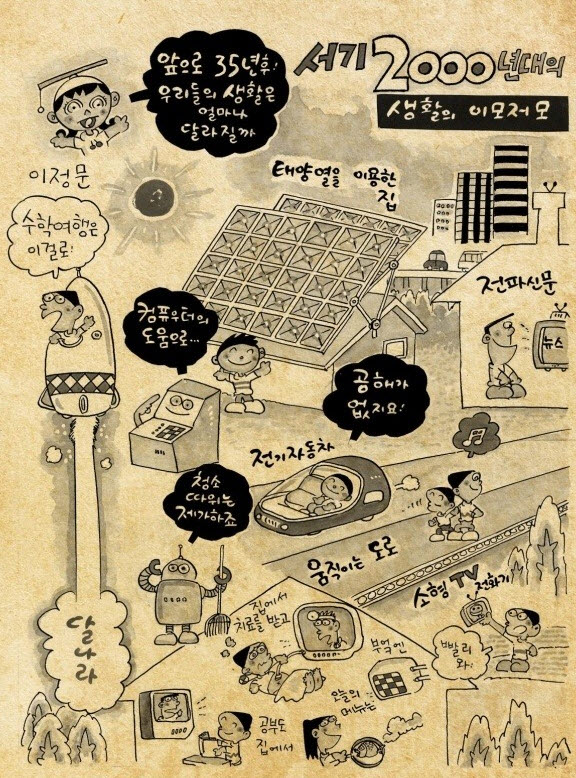 앞으로 35년후!
우리들의 생활은
얼마나
달라질까
서기 2000년대의
생활의 이모저모
이정문
태양열을 이용한
집
수학여행은
이걸로!
전파신문
뉴스
컴퓨우터의
도움으로...
공해가
없지요!
전기자동차
청소
따위는
제가하죠
움직이는 도로
소형 TV 전화기
달나라
집에서
치료를 받고
빨리
와!
부엌엔
오늘의
메뉴는
공부도
집에서